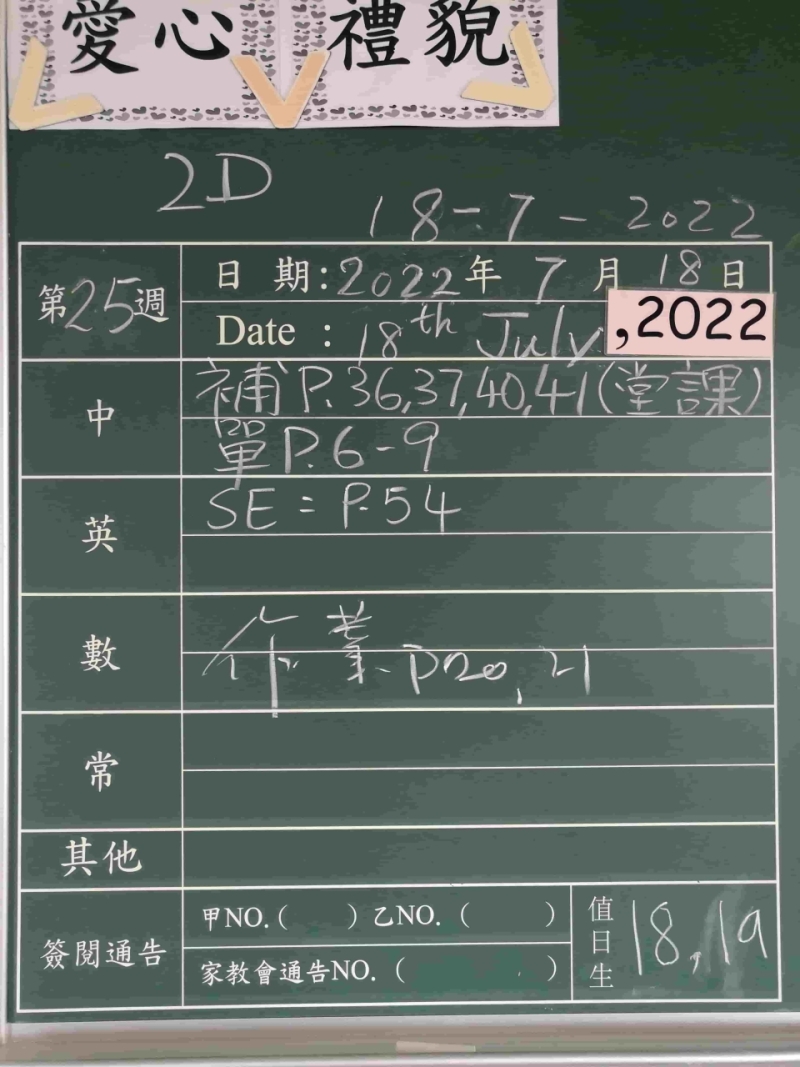 愛心 禮貌
2D
18-7-2022
第25週
日期:2022年7月18日
Date : 18th July ,2022
中
補P.36,37,40,41(堂課)
單P.6-9
英
SE = P.54
數
作業 P20,21
常
其他
簽閱通告
甲NO.( ) 乙NO. ( )
家教會通告NO. ( )
值日生 18,19